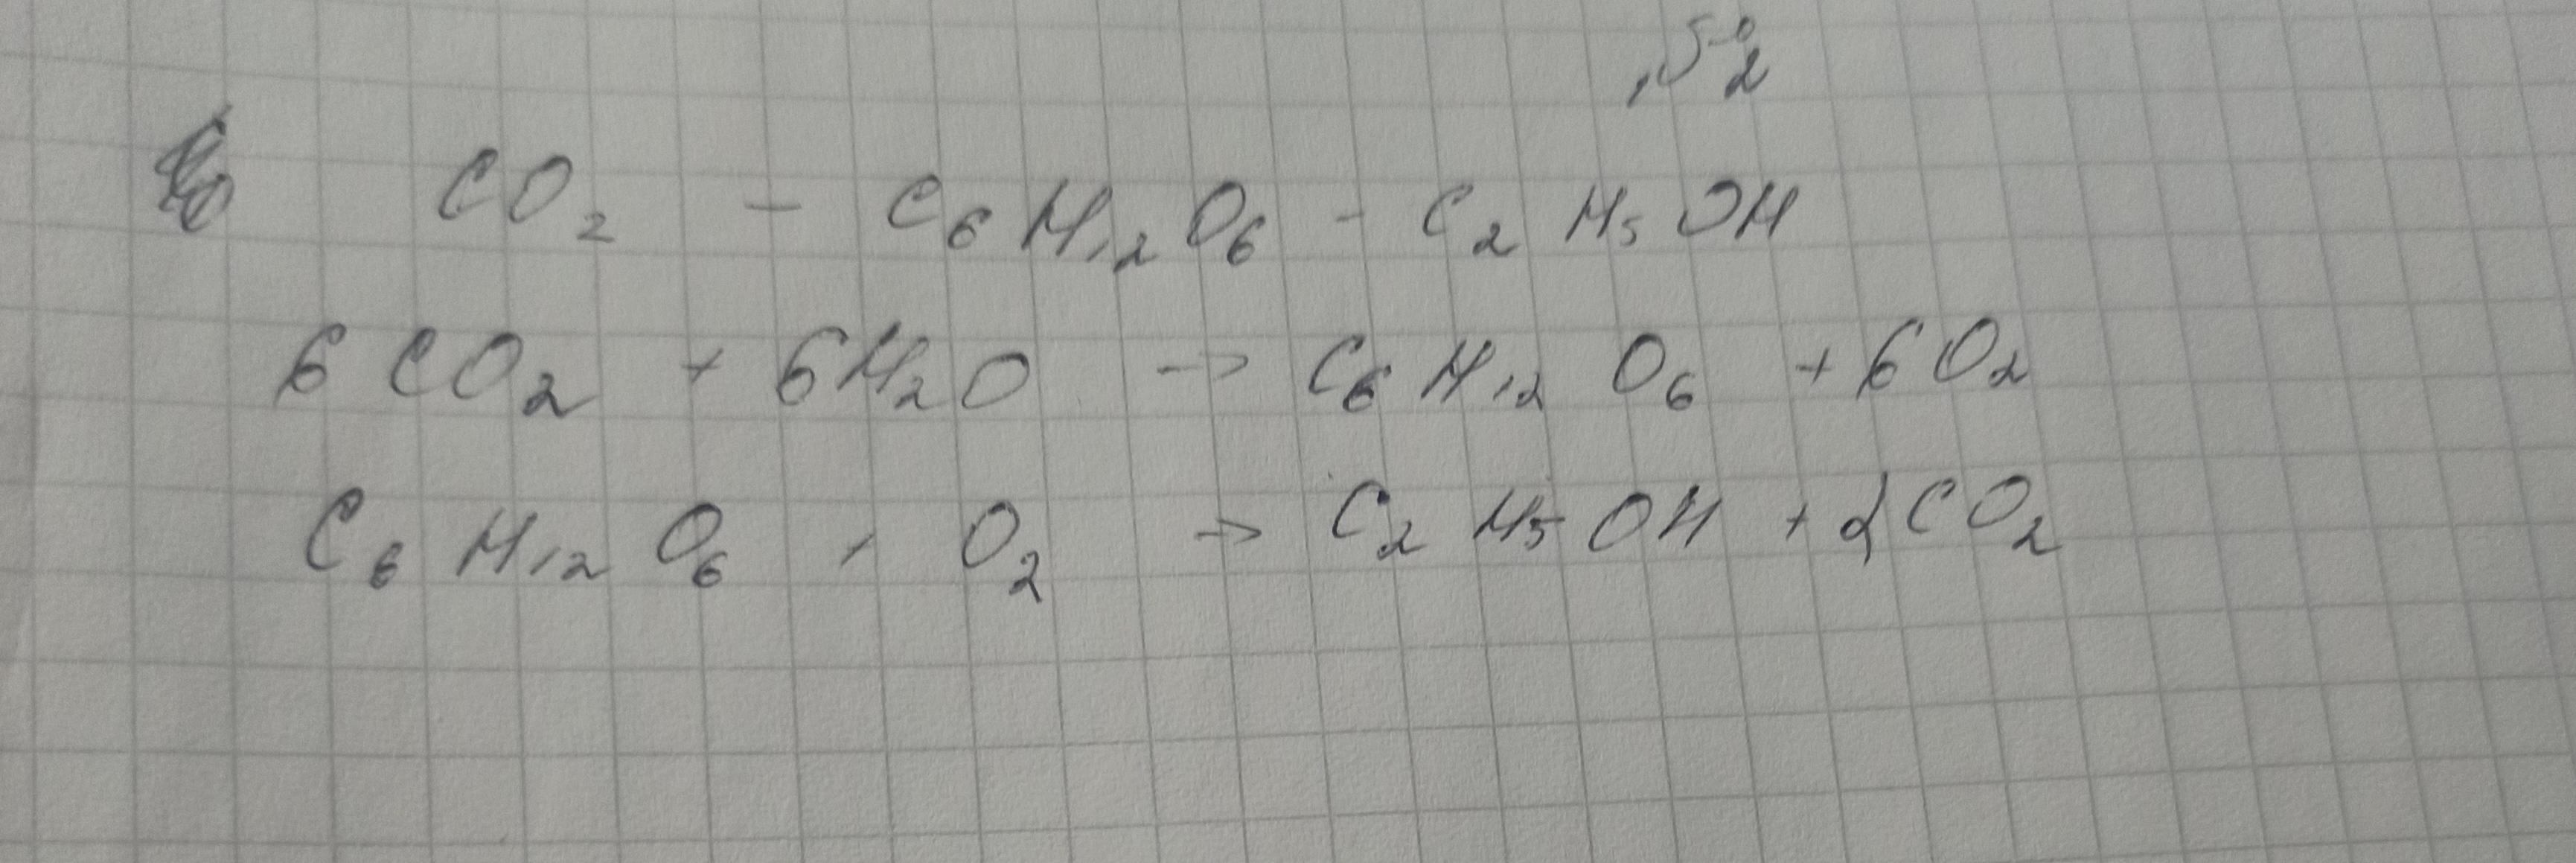 CO₂ - C₆H₁₂O₆ - C₂H₅OH
6CO₂ + 6H₂O → C₆H₁₂O₆ + 6O₂
C₆H₁₂O₆ + O₂ → C₂H₅OH + 2CO₂